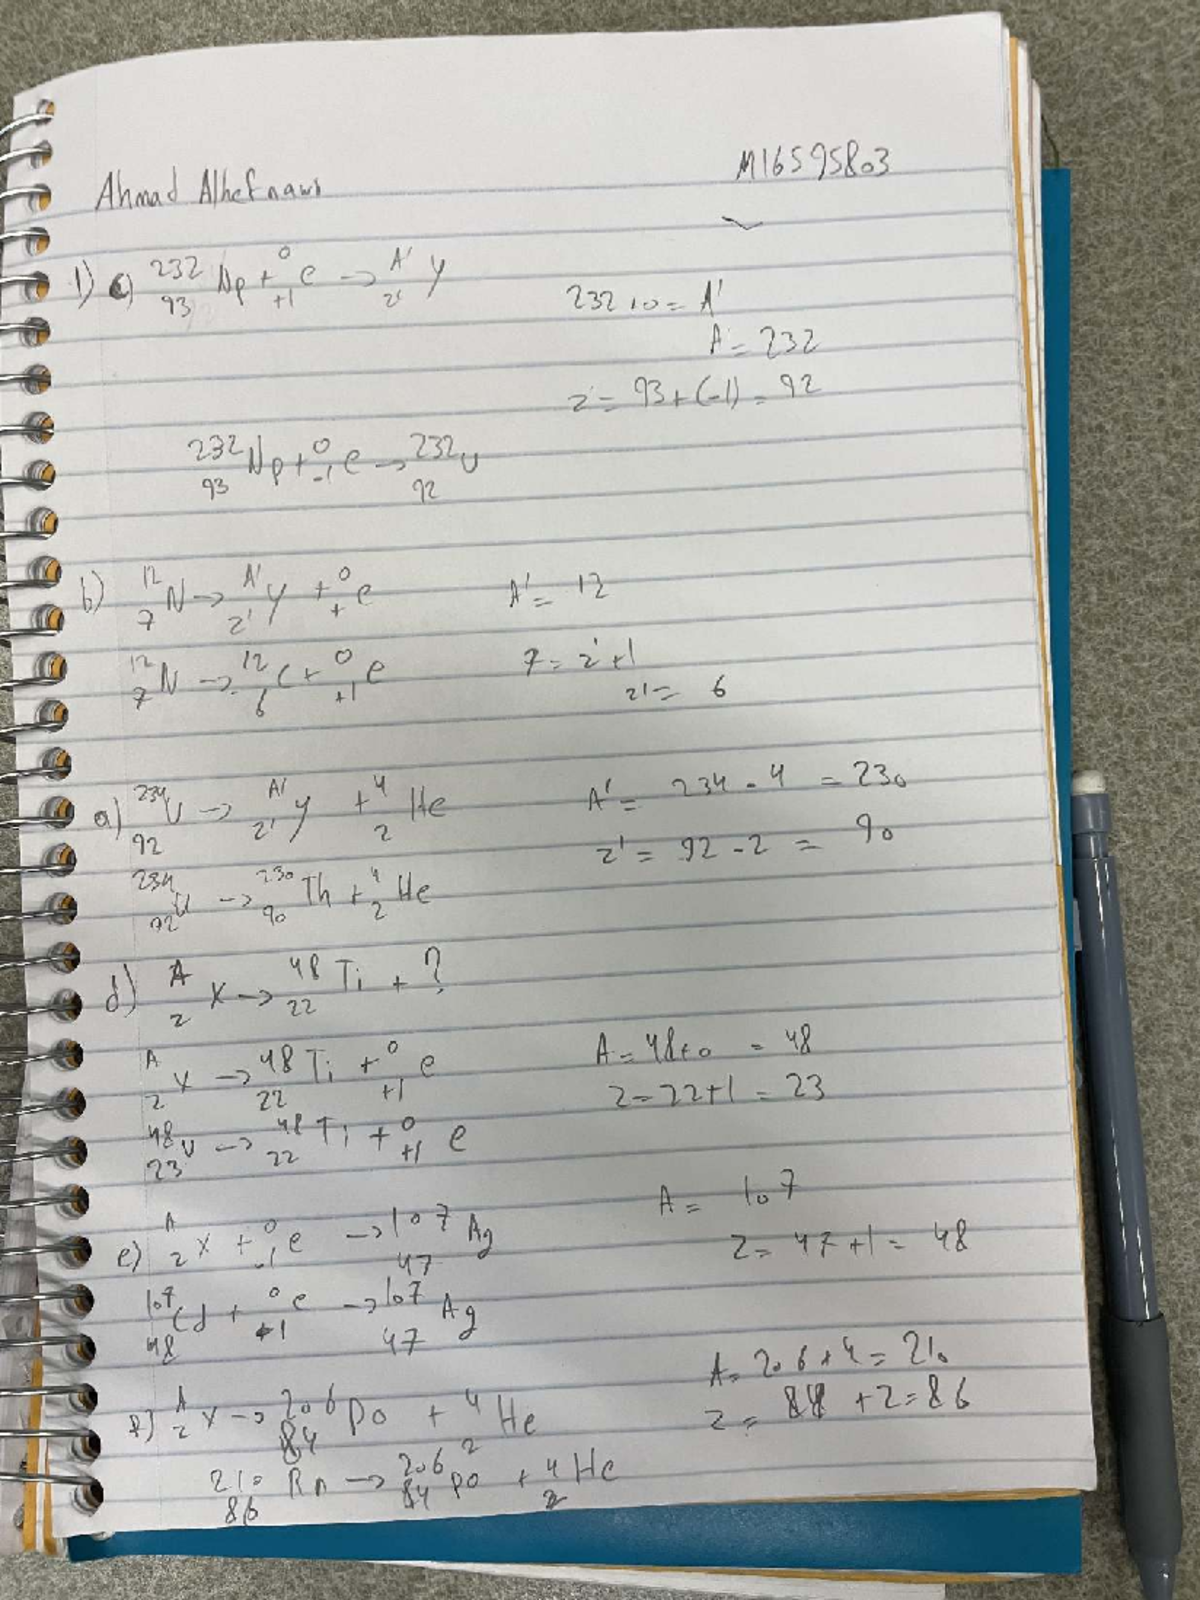 Ahmad Alhefnawi M16595803
1) c) ²³²₉₃Np + ⁰₊₁e → ᴬ'_z' Y
232+0 = A'
A' = 232
z' = 93 + (-1) = 92
²³²₉₃Np + ⁰₋₁e → ²³²₉₂U
b) ¹²₇N → ᴬ'_z' Y + ⁰₊e A' = 12
¹²₇N → ¹²₆C + ⁰₊₁e 7 = z' + 1
z' = 6
a) ²³⁴₉₂U → ᴬ'_z' Y + ⁴₂He A' = 234 - 4 = 230
z' = 92 - 2 = 90
²³⁴₉₂U → ²³⁰₉₀Th + ⁴₂He
d) ᴬ_z X → ⁴⁸₂₂Ti + ?
ᴬ_z X → ⁴⁸₂₂Ti + ⁰₊₁e A = 48+0 = 48
z = 22+1 = 23
⁴⁸₂₃V → ⁴⁸₂₂Ti + ⁰₊₁e
e) ᴬ_z X + ⁰₋₁e → ¹⁰⁷₄₇Ag A = 107
z = 47 + 1 = 48
¹⁰⁷₄₈Cd + ⁰₋₁e → ¹⁰⁷₄₇Ag
f) ᴬ_z X → ²⁰⁶₈₄Po + ⁴₂He A = 206 + 4 = 210
z = 84 + 2 = 86
²¹⁰₈₆Rn → ²⁰⁶₈₄Po + ⁴₂He